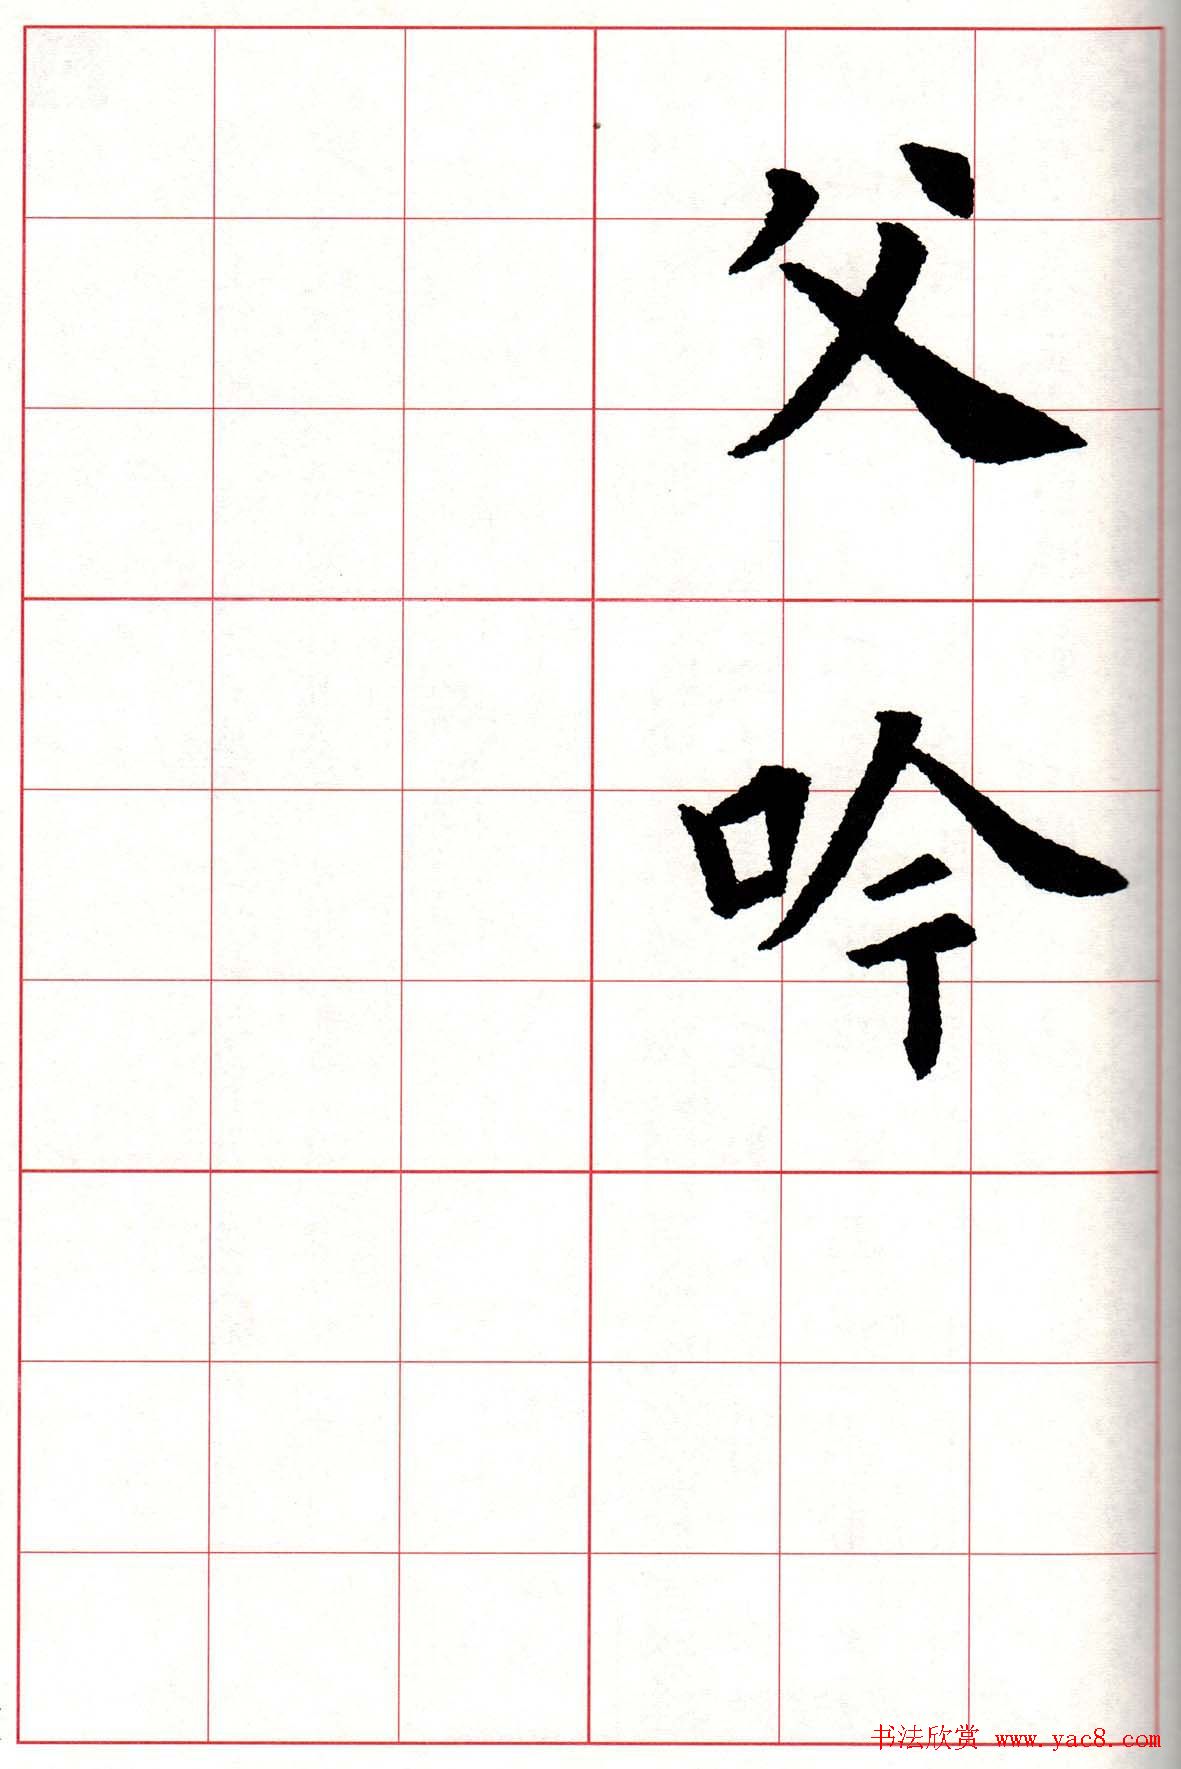 父吟
书法欣赏 www.yac8.com